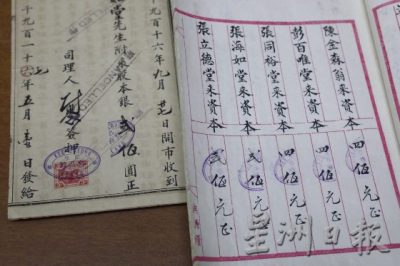 陳金森翁来資本 四佰元正
彭百維堂来資本 四佰元正
張同裕堂来資本 四佰元正
張海如堂来資本 貳佰元正
張立德堂来資本 貳佰元正
九百十六年九月 日開市收到
堂先生附来股本銀貳佰圓正
司理人 簽押
千九百一十 年五月 日發給
CANCELLED
星洲日报